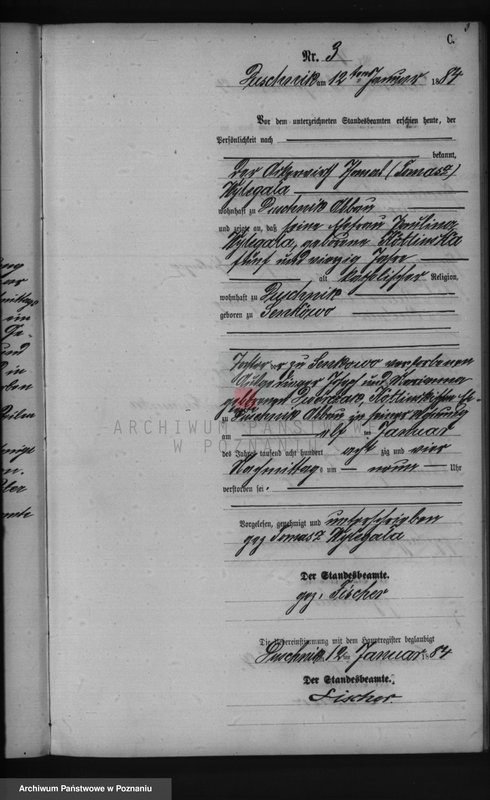 3
C.
Nr. 3
Duschnik am 12ten Januar 1884
Vor dem unterzeichneten Standesbeamten erschien heute, der
Persönlichkeit nach
bekannt,
der Ackerwirt Tomas (Tomasz)
Wylegala
wohnhaft zu Duschnik Abbau
und zeigte an, daß seine Ehefrau Paulina
Wylegala, geborene Kotlinska
fünf und vierzig Jahre
alt katholischer Religion,
wohnhaft zu Duschnik
geboren zu Senkowo
Tochter der zu Senkowo verstorbenen
und Marianna
geborenen
zu Duschnik Abbau in seiner Wohnung
am elf ten Januar
des Jahres tausend acht hundert acht zig und vier
Nachmittags um neun Uhr
verstorben sei.
Vorgelesen, genehmigt und unterschrieben
gez Tomasz Wylegala
Der Standesbeamte.
gez. Fischer
Die Uebereinstimmung mit dem Hauptregister beglaubigt
Duschnik 12 ten Januar 1884
Der Standesbeamte.
Fischer.
ARCHIWUM PAŃSTWOWE
W POZNANIU
Archiwum Państwowe w Poznaniu